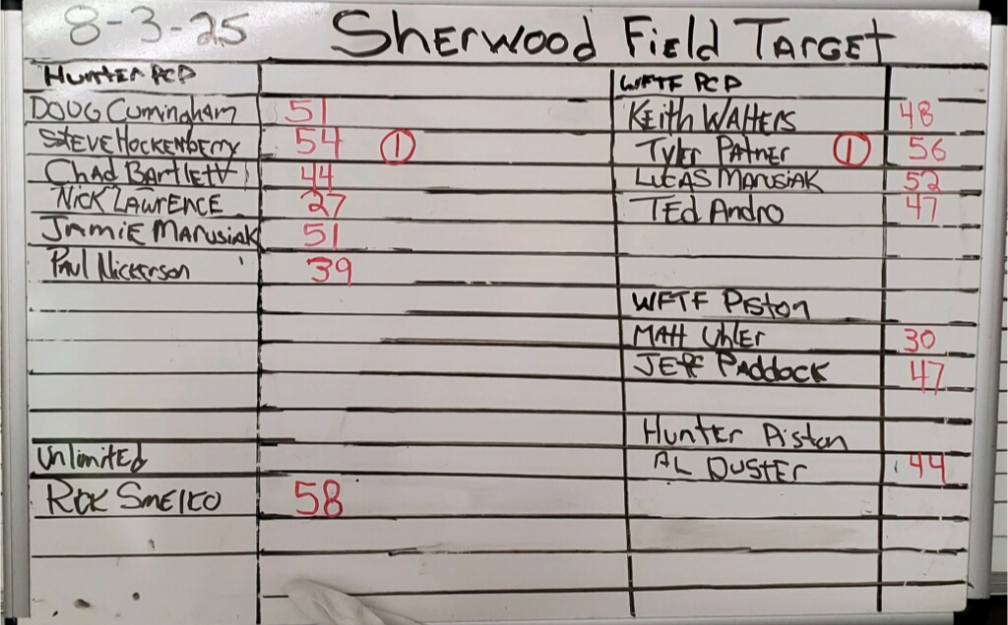 8-3-25 Sherwood Field Target
Hunter PCP
Doug Cuminaham 51
Steve Hockenberry 54 1
Chad Bartlett 44
Nick Lawrence 27
Jamie Marusiak 51
Paul Nickerson 39
Unlimited
Rick Smelko 58
WFTF PCP
Keith Walters 48
Tyler Patner 1 56
Lucas Marusiak 52
Ted Andro 47
WFTF Piston
Matt Uhler 30
Jeff Paddock 47
Hunter Piston
Al Duster 44